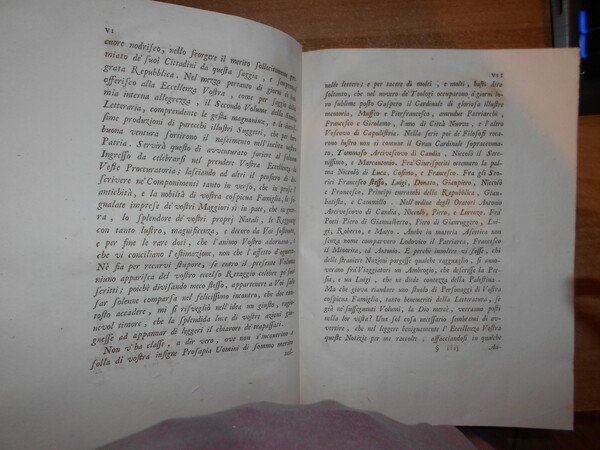 VI
cuore nodrisco, nello scorgere il merito sollecitamente pre-
miato de' suoi Cittadini da questa saggia, e sempre
grata Repubblica. Nel mezzo pertanto di giorni sì lieti
offerisco alla Eccellenza Vostra, come per saggio della
mia interna allegrezza, il Secondo Volume della Storia
Letteraria, comprendente le gesta magnanime, e le dottis-
sime produzioni di parecchi illustri Suggetti, che per
buona ventura sortirono il nascimento nell'inclita nostra
Patria. Servirà questo di avventurato foriere al solenne
Ingresso da celebrarsi nel prendere Vostra Eccellenza la
Veste Procuratoria; lasciando ad altri il pensiero di de-
scrivere ne' Componimenti tanto in verso, che in prosa l'
antichità, e la nobiltà di vostra cospicua Famiglia, le se-
gnalate imprese de' vostri Maggiori sì in pace, che in guer-
ra, lo splendore de' vostri propri Natali, le Reggenze
con tanto lustro, magnificenza, e decoro da Voi sostenute,
e per fine le rare doti, che l'animo Vostro adornano, e
vi conciliano l'estimazione, non che l'affetto d'ognuno.
Nè fia per recarvi stupore, se entro il presente Volume
niuno apparisca del vostro eccelso Retaggio celebre per
scritti; poichè divisando meco stesso, apparecchiare a Voi
salse solenne comparsa nel felicissimo incontro, che dee
tosto accadere, mi si risvegliò nell'idea un giusto, ragio-
nevol timore, che la splendida luce di vostre azioni giu-
gnesse ad appannar di leggeri il chiarore de' trapassati.
Non v'ha classe, a dir vero, ove non s'incontrino
folla di vostra insigne Prosapia Uomini di sommo merito
nel-
VII
nelle lettere; e per tacere di molti, e molti, basti dire
soltanto, che nel novero de' Teologi occuparono a' giorni loro
sublime posto Gaspero il Cardinale di gloriosa illustre
memoria, Maffeo e Pierfrancesco, amendue Patriarchi,
Francesco e Girolamo, l'uno di Città Nuova, e l'altro
Vescovo di Capodistria. Nella serie poi de' Filosofi reca-
rono lustro non sì comune il Gran Cardinale sopraccenna-
to, Tommaso Arcivescovo di Candia, Niccolò il Sere-
nissimo, e Marcantonio. Fra' Giurisperiti ottennero la palma
Niccolò di Luca, Cosimo, e Francesco. Fra gli Sto-
rici Francesco stesso, Luigi, Donato, Gianpiero, Niccolò
e Francesco, Principi entrambi della Repubblica, Gian-
batista, e Cammillo. Nell'ordine degli Oratori Antonio
Arcivescovo di Candia, Niccolò, Piero, e Lorenzo. Fra'
Poeti Piero di Giannalberto, Piero di Gianruggero, Lui-
gi, Roberto, e Marco. Anche in materia Ascetica non
senza nome comparvero Lodovico il Patriarca, Francesco
il Minorita, ed Antonio. E perchè incolere vi fosse, chi
delle straniere Nazioni porgesse qualche ragguaglio, si annove-
rano fra' Viaggiatori un Ambrogio, che descrisse la Per-
sia, e un Luigi, che ne diede contezza della Palestina.
Ma che giova riandare uno stuolo di Personaggi di Vostra
cospicua Famiglia, tanto benemeriti della Letteratura, se
già ne' susseguenti Volumi, la Dio mercè, verranno posti
nella lor vista? Una sol cosa necessario sembrami di av-
vertire, che nel leggere benignamente l'Eccellenza Vostra
queste Notizie per me raccolte, affacciandosi in qualche
§ iiij Au-